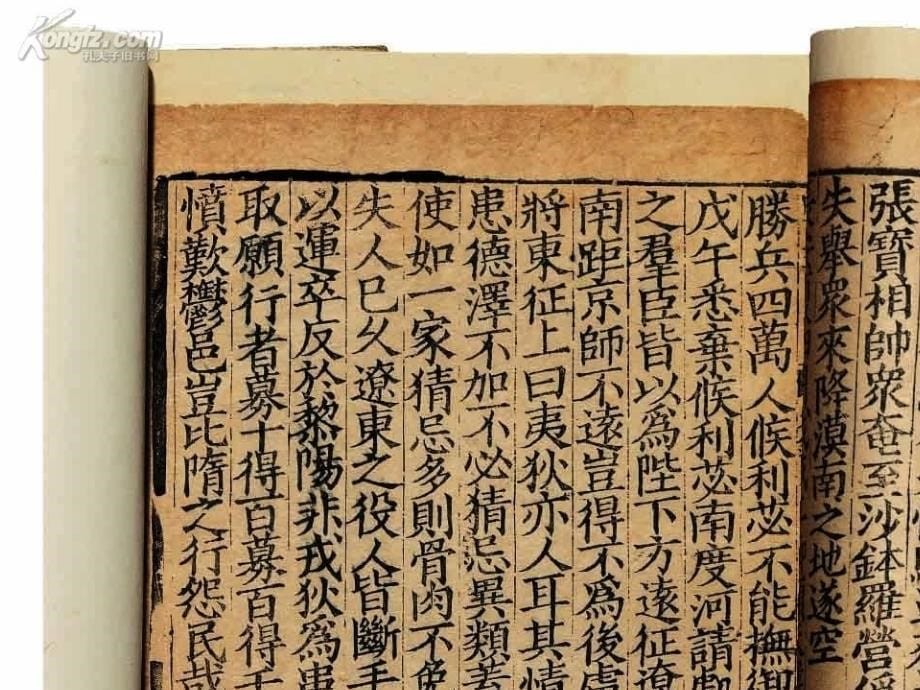 Kongfz.com
孔夫子旧书网
張寶相帥眾奄至沙鉢羅營俘
失舉眾來降漠南之地遂空
勝兵四萬人候利苾不能撫御
戊午悉棄候利苾南度河請
之羣臣皆以為陛下方遠征遼
南距京師不遠豈得不為後慮
將東征上曰夷狄亦人耳其情
患德澤不加不必猜忌異類蓋
使如一家猜忌多則骨肉不免
失人巳久遼東之役人皆斷手
以運卒反於黎陽非戎狄為
取願行者募十得百募百得千
憤歎鬱邑豈比隋之行怨民哉